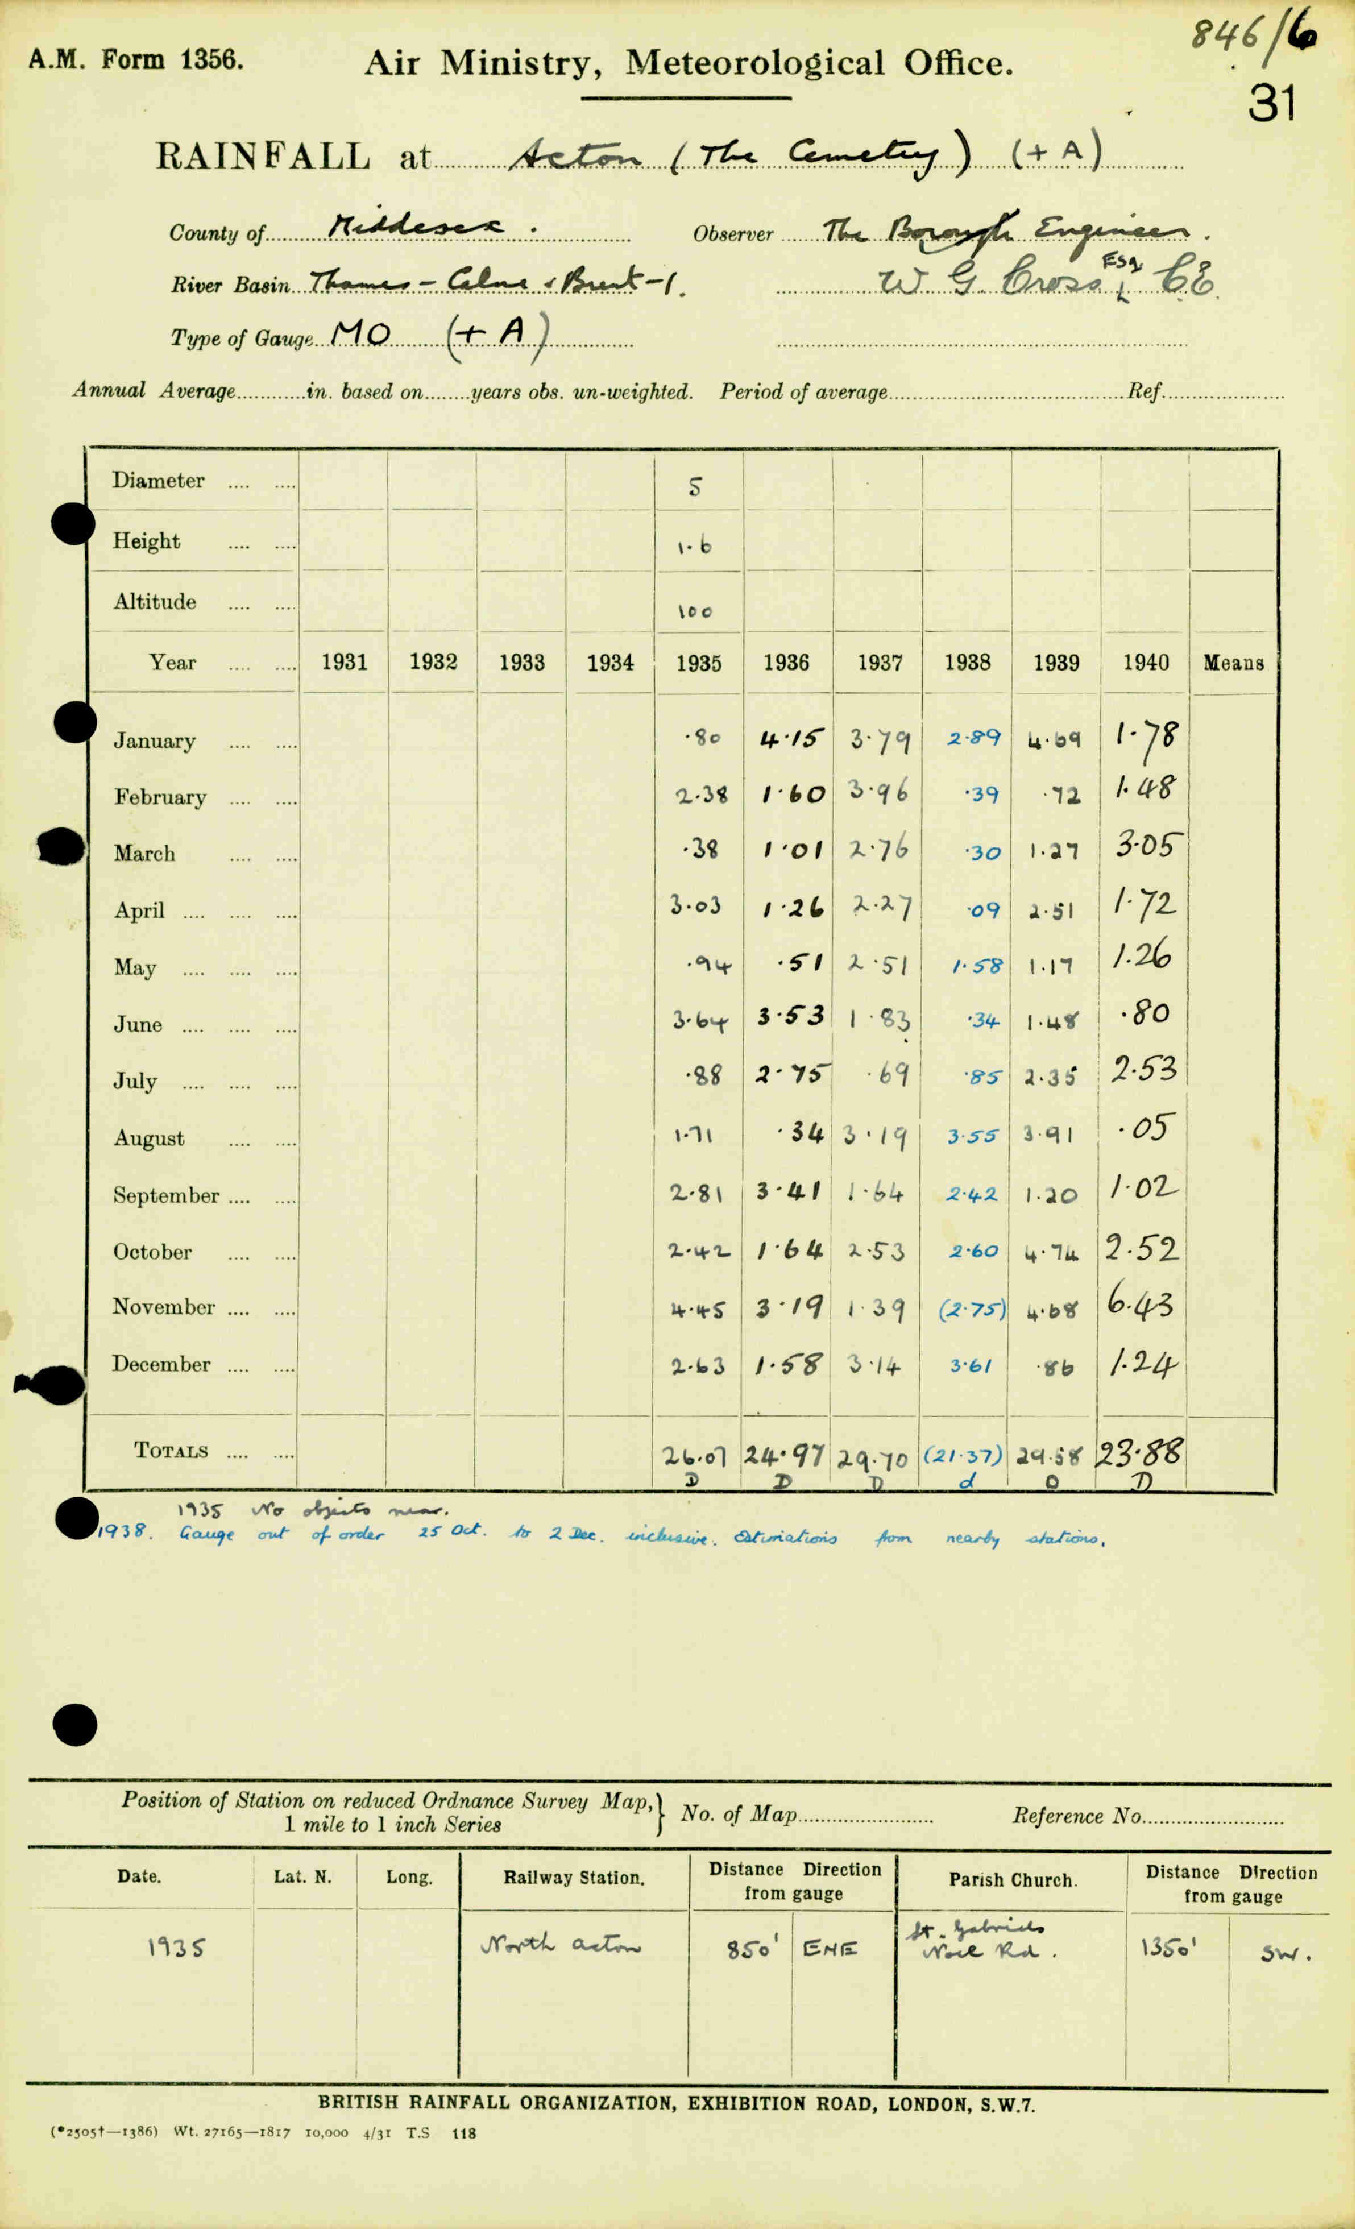 846/6
A.M. Form 1356. Air Ministry, Meteorological Office.
31
RAINFALL at Acton (The Cemetery) (+ A)
County of Middlesex. Observer The Borough Engineer.
River Basin Thames - Colne & Brent - 1. W G Cross Esq CE.
Type of Gauge MO (+ A)
Annual Average............in. based on........years obs. un-weighted. Period of average........................................Ref.....................
Diameter .... .... 5
Height .... .... 1.6
Altitude .... .... 100
Year .... .... 1931 1932 1933 1934 1935 1936 1937 1938 1939 1940 Means
January .... .... ·80 4·15 3·79 2·89 4·69 1·78
February .... .... 2·38 1·60 3·96 ·39 ·72 1·48
March .... .... ·38 1·01 2·76 ·30 1·27 3·05
April .... .... .... 3·03 1·26 2·27 ·09 2·51 1·72
May .... .... .... ·94 ·51 2·51 1·58 1·17 1·26
June .... .... .... 3·64 3·53 1·83 ·34 1·48 ·80
July .... .... .... ·88 2·75 ·69 ·85 2·35 2·53
August .... .... 1·71 ·34 3·19 3·55 3·91 ·05
September .... .... 2·81 3·41 1·64 2·42 1·20 1·02
October .... .... 2·42 1·64 2·53 2·60 4·74 2·52
November .... .... 4·45 3·19 1·39 (2·75) 4·68 6·43
December .... .... 2·63 1·58 3·14 3·61 ·86 1·24
TOTALS .... .... 26·07 24·97 29·70 (21·37) 29·58 23·88
D D D d D D
1935 No objects near.
1938. Gauge out of order 25 Oct. to 2 Dec. inclusive. Estimations from nearby stations.
Position of Station on reduced Ordnance Survey Map, 1 mile to 1 inch Series } No. of Map........................ Reference No.........................
Date. Lat. N. Long. Railway Station. Distance Direction from gauge Parish Church. Distance Direction from gauge
1935 North Acton 850' ENE St. Gabriels Noel Rd. 1350' SW.
BRITISH RAINFALL ORGANIZATION, EXHIBITION ROAD, LONDON, S.W.7.
(*2505†—1386) Wt. 27165—1817 10,000 4/31 T.S 118